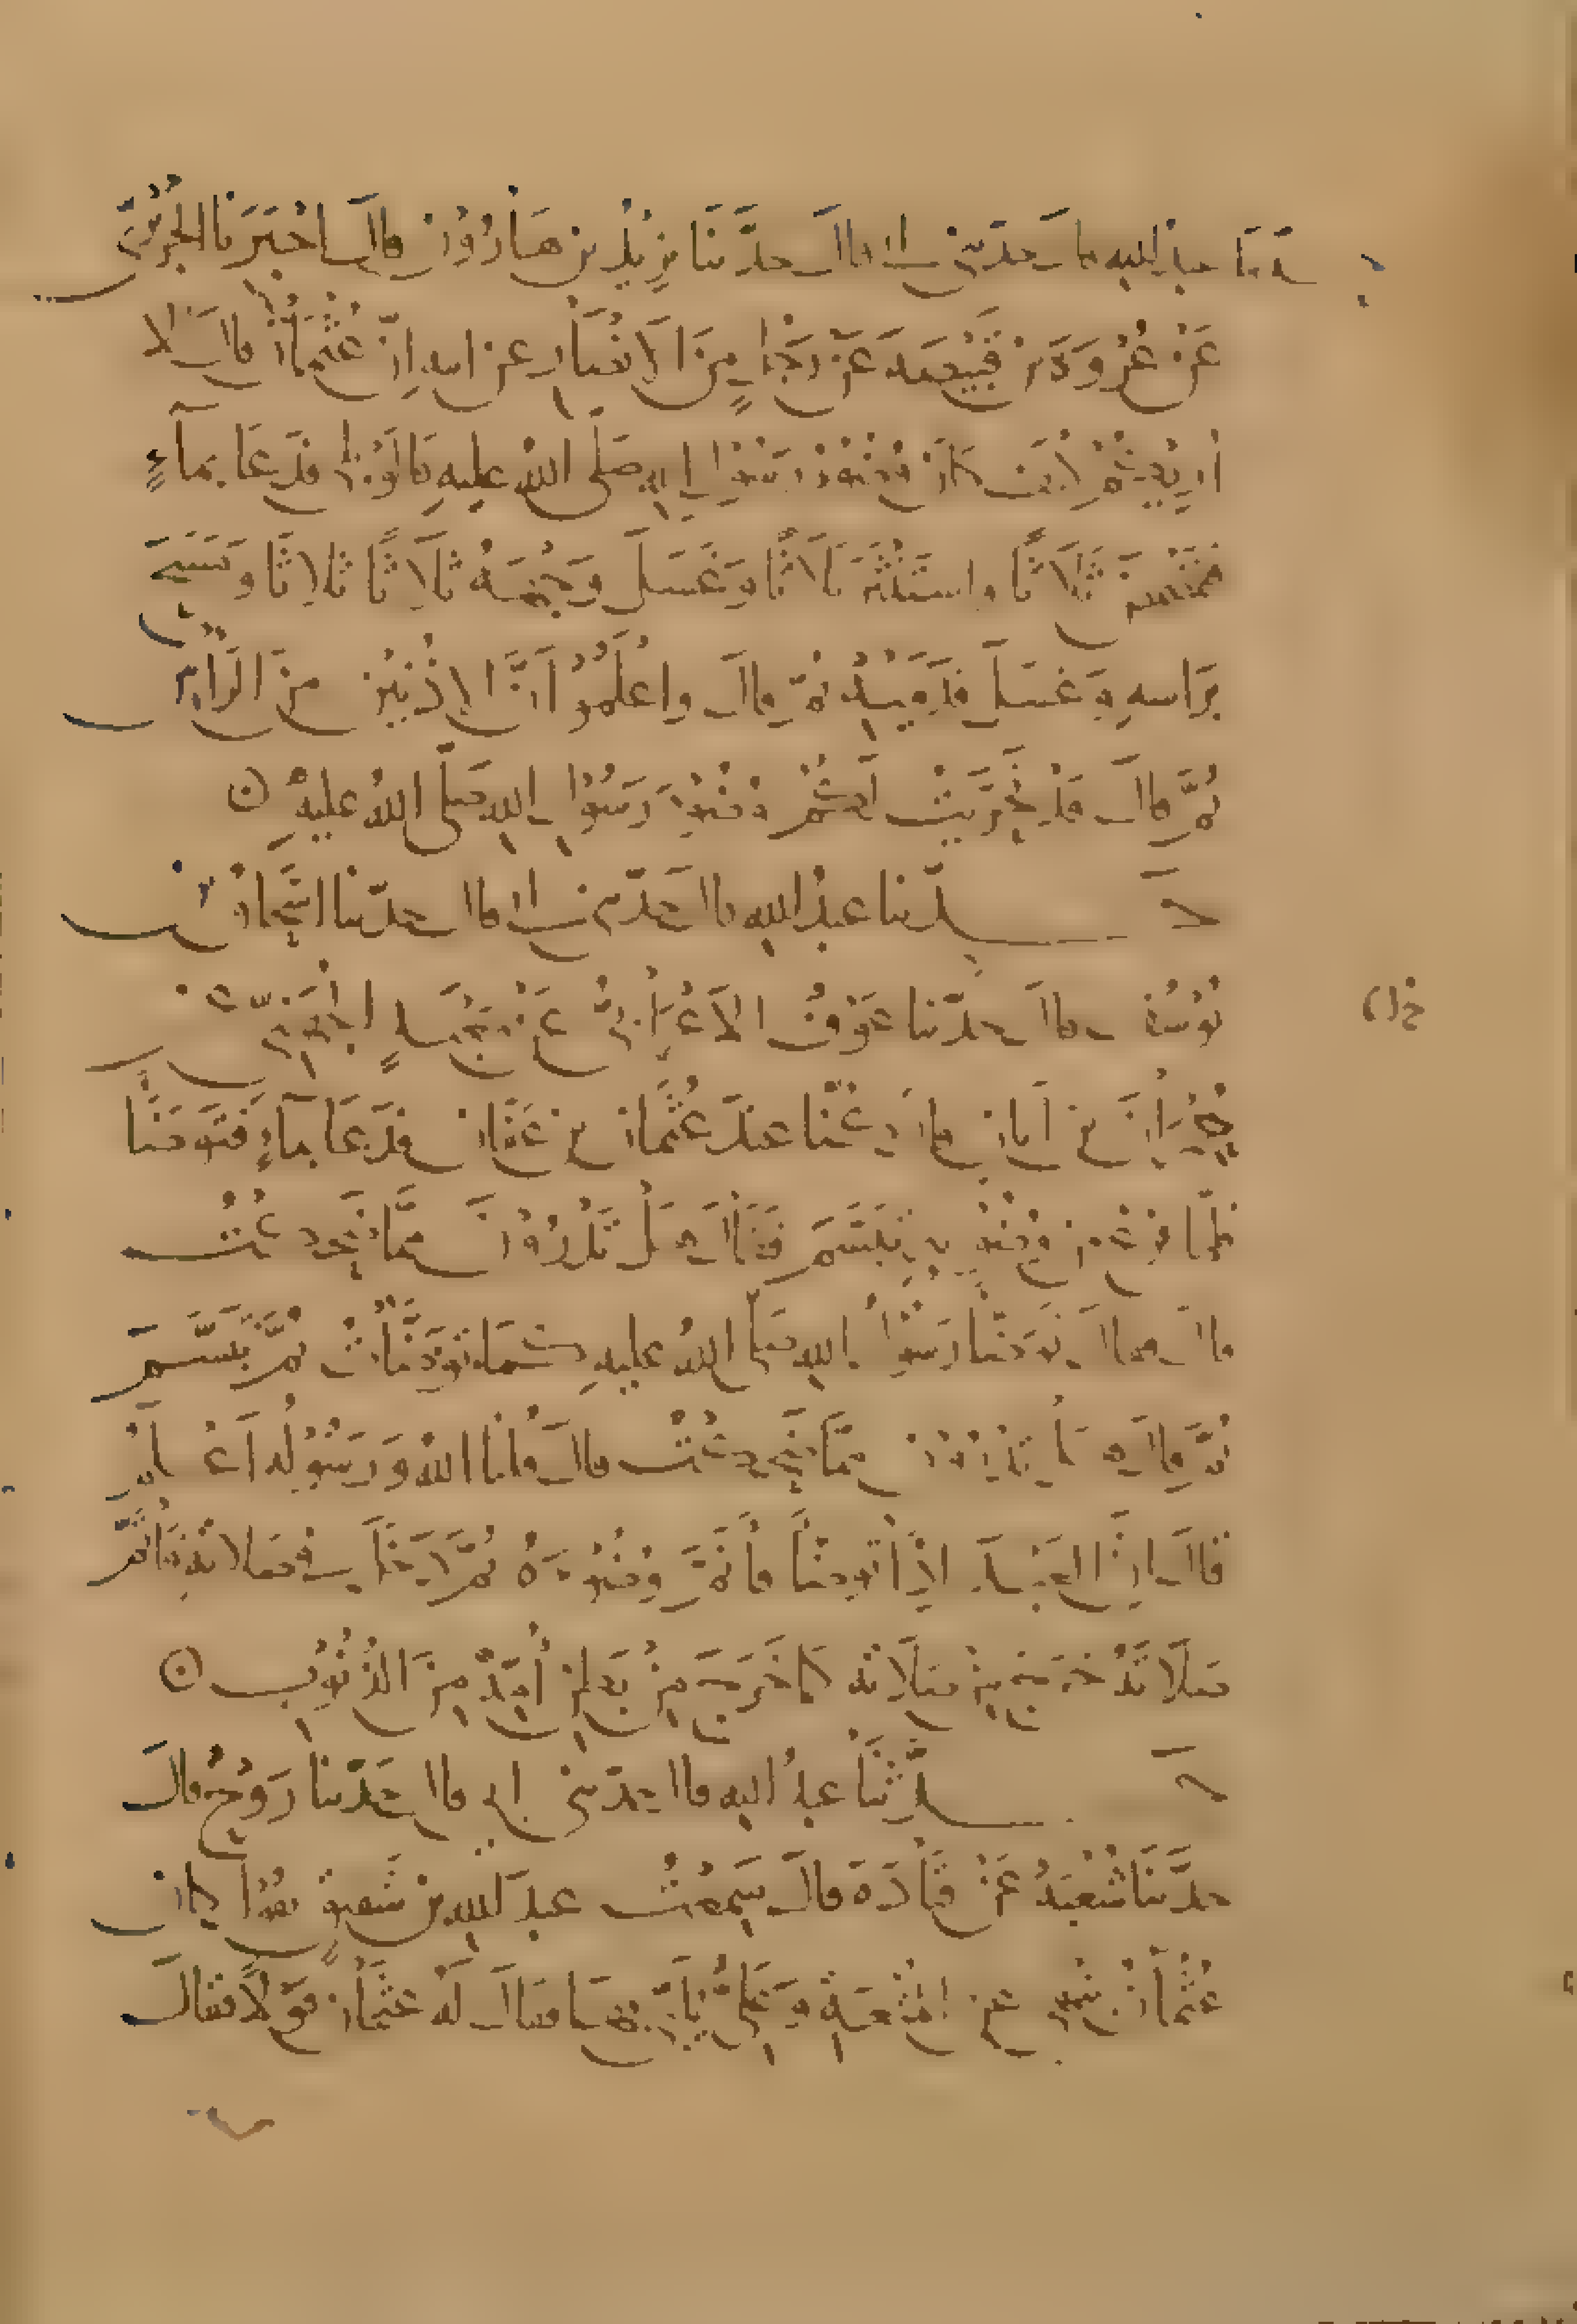 حدثنا عبد الله قال حدثني ابي قال حدَّثنَا يزِيْدُ بن هَارُوْن قالَ اخْبَرَنا الجُرَيْرِيّ
عَنْ عُرْوَةَ بنْ قَبِيْصَةَ عَنْ رَجُلٍ مِنَ الاَنْصَارِ عن ابيه اِنّ عُثْمَانْ قالَ الا
اُرِيْكُمْ كَيفَ كانَ وُضُوْءُ رَسُوْلِ اللهِ صَلَّى اللهُ عليهِ قَالوْا بلى فدَعَا بمآءٍ
فتمَضْمَضَ ثَلاَثًا واستَنْثَرَ ثَلاَثًا وَغَسَلَ وَجْهَهُ ثَلاثًا ثلاثًا وَمَسَحَ
بَرَاسهِ وَغسَلَ قدَمَيْهِ ثمّ قالَ واعْلَمُوْا اَنَّ الاذُنيْنِ مِنَ الرَّاْسِ
ثُمَّ قالَ قَدْ تحَرَّيْتُ لَكُمْ وُضُوْءَ رَسُوْلِ اللهِ صَلى اللهُ عليهِ ن
حـــدّثنا عبدُ الله قال حَدّثني ابي قال حدّثنا اسْحَاقُ بن
يُوْسُفَ قالَ حدّثنا عَوْفٌ الاَعْرَابيُّ عَنْ مَعْبَدٍ الجُهَنيّ عن
حُمْرَانَ بن اَبانٍ قالَ كُنّا عندَ عُثْمَان بن عَفّان فدَعَا بمآءٍ فتَوَضّا
فلمّا فرَغ من وُضُوْئِهِ تبَسَّمَ فقَالَ هَلْ تَدْرُوْنَ ممَّا ضَحِكْتُ
قالَ فقالَ تَوَضّا رَسُوْلُ اللهِ صَلى اللهُ عليهِ كمَا تَوَضّاْتُ ثمّ تبَسَّمَ
ثمَّ قالَ هَل تَدْرُوْنَ ممَّا ضَحِكْتُ قالَ قلْنَا اللهُ وَرَسُوْلُه اَعْلمُ
قالَ انّ العَبْدَ اذَا تَوضّاَ فاَتمَّ وُضُوْءَهُ ثمَّ دَخَلَ في صَلاتهِ فاَتمَّ
صَلاَتَهُ خرَجَ مِنْ صَلاَته كما خَرَجَ مِنْ بَطنِ اُمّهِ مِنَ الذُنُوْبِ ن
حـــدَّثَنَا عبدُ الله قال حدّثني ابي قال حَدّثنا رَوْحٌ قالَ
حدَّثنَا شُعْبَةُ عَنْ قَتَادَةَ قالَ سَمِعْتُ عبدَ اللهِ بن شَقيقٍ يقُوْلُ كان
عُثْمَانُ يَنْهى عن المُتْعَةِ وَعَليٌّ يَاْمُرُ بهَا فقالَ لَهُ عثْمَانُ قَوْلاً فقالَ